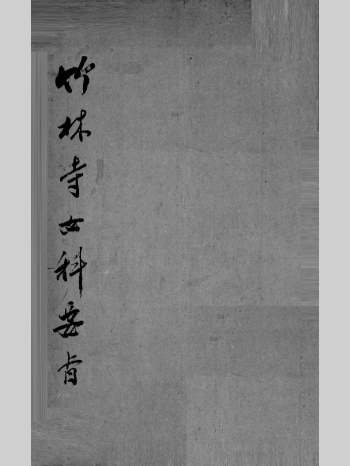 竹林寺女科要旨